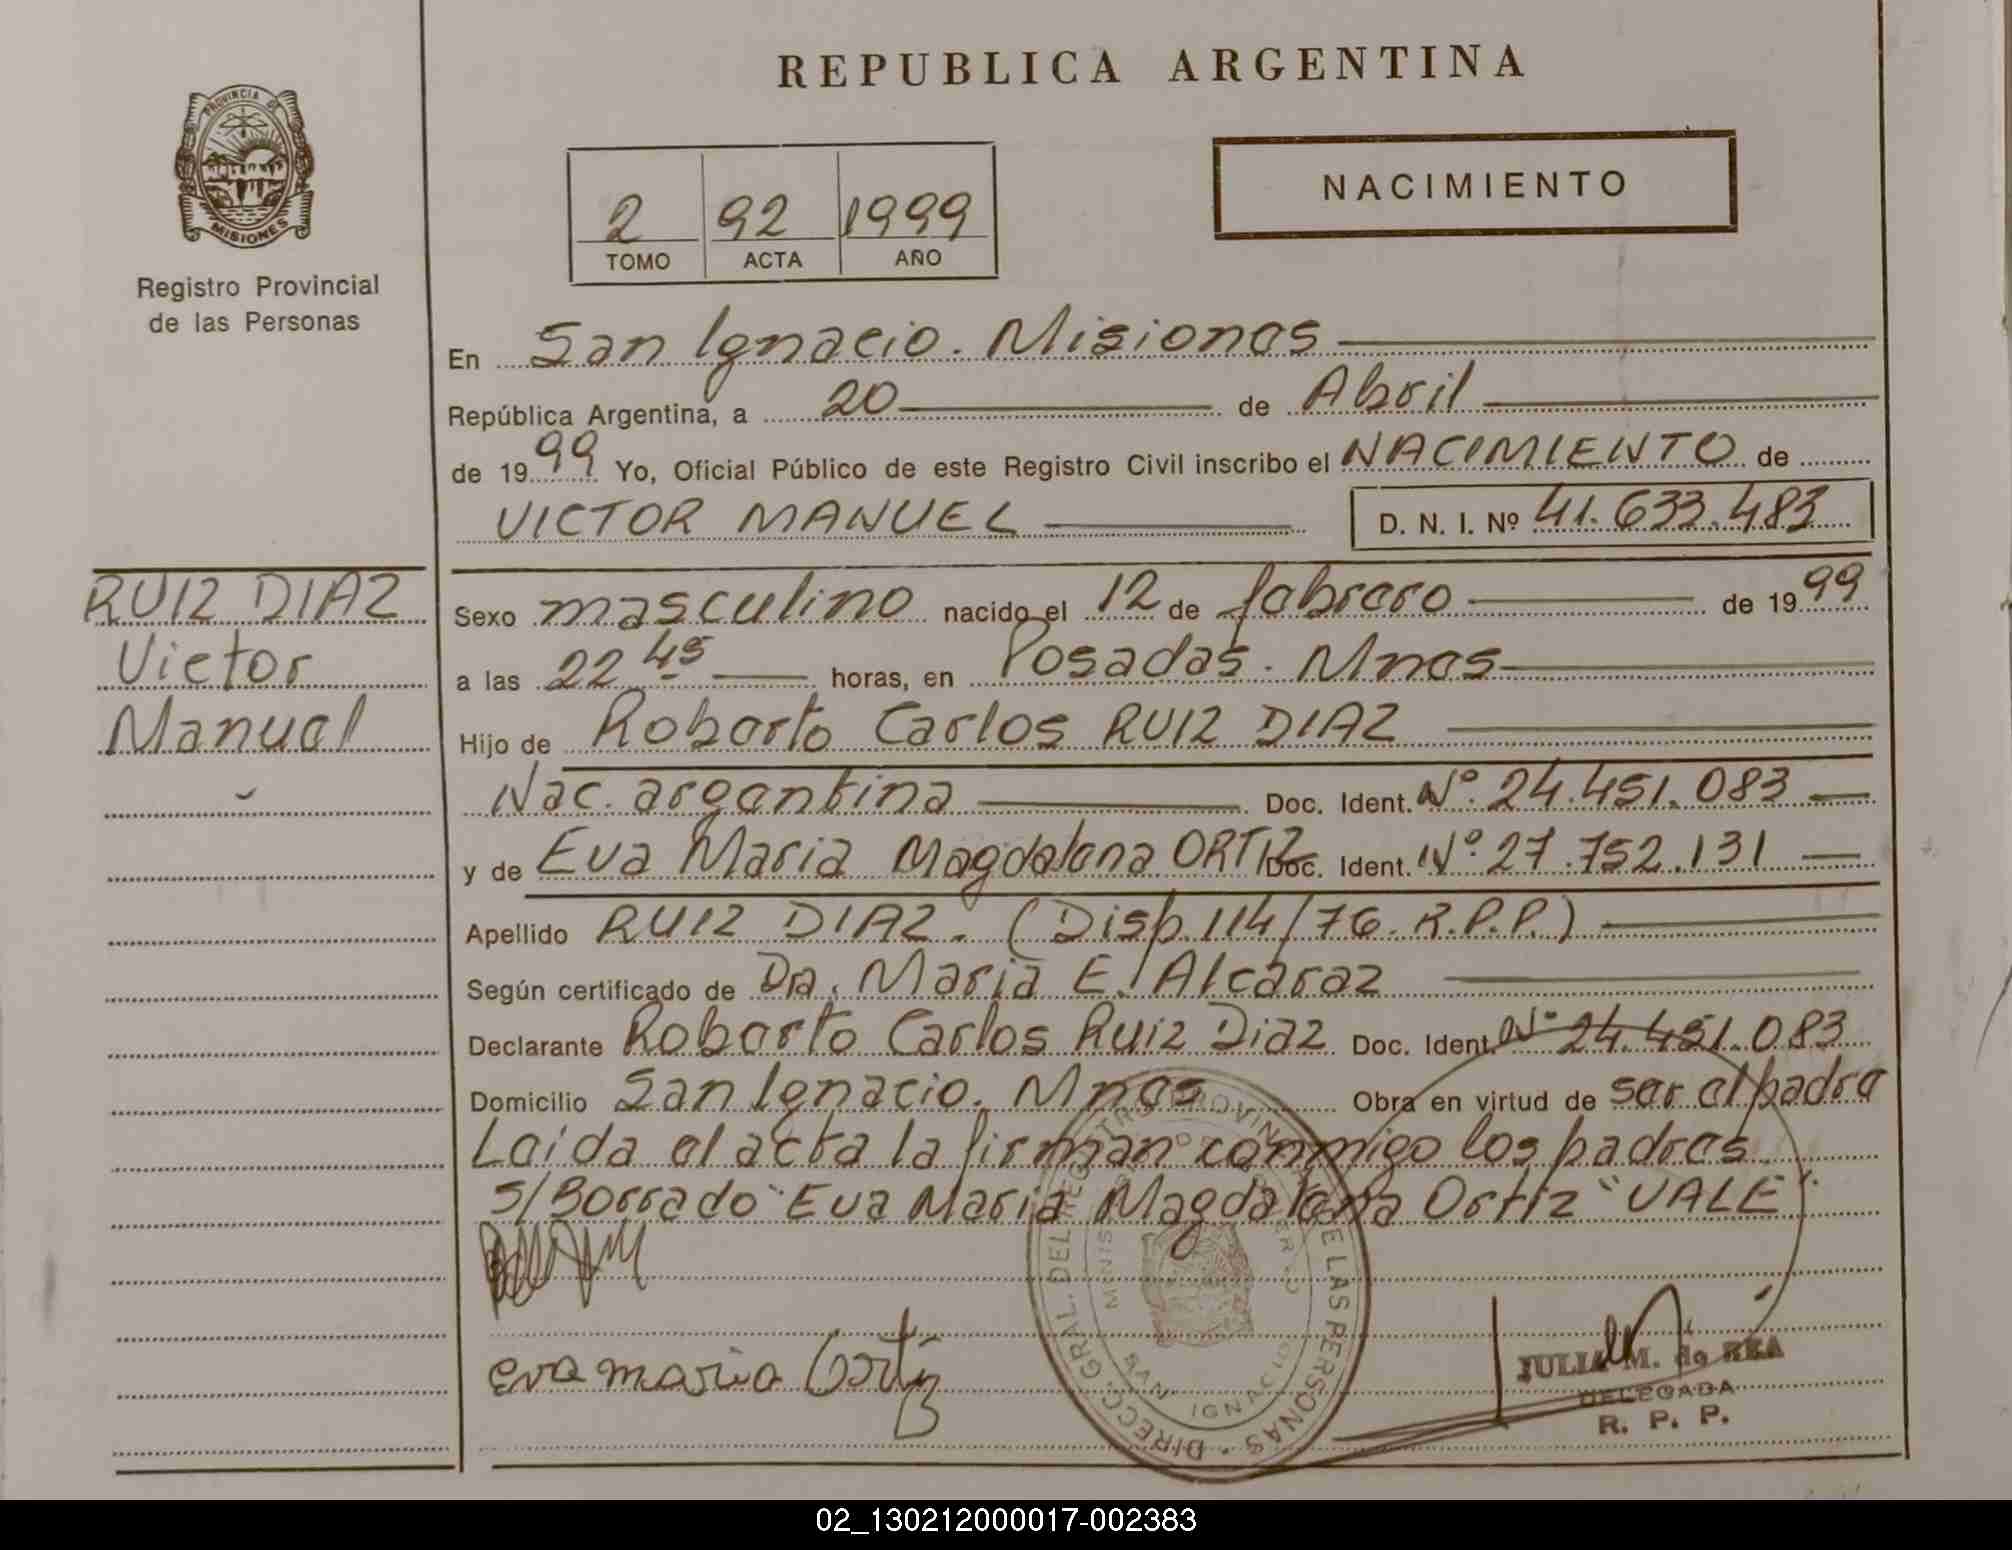 REPUBLICA ARGENTINA
PROVINCIA DE MISIONES
Registro Provincial
de las Personas
2 92 1999
TOMO ACTA AÑO
NACIMIENTO
En San Ignacio. Misiones
República Argentina, a 20 de Abril
de 1999 Yo, Oficial Público de este Registro Civil inscribo el NACIMIENTO de
VICTOR MANUEL D. N. I. Nº 41.633.483
RUIZ DIAZ
Victor
Manuel
Sexo masculino nacido el 12 de febrero de 1999
a las 22 45 horas, en Posadas. Mnes
Hijo de Roberto Carlos RUIZ DIAZ
Nac. argentina Doc. Ident. Nº 24.451.083
y de Eva Maria Magdalena ORTIZ Doc. Ident. Nº 27.752.131
Apellido RUIZ DIAZ. (Disp. 114/76. R.P.P.)
Según certificado de Dra. Maria E. Alcaraz
Declarante Roberto Carlos Ruiz Diaz Doc. Ident. Nº 24.451.083
Domicilio San Ignacio. Mnes Obra en virtud de ser el padre
Leida el acta la firman conmigo los padres
S/Borrado "Eva Maria Magdalena Ortiz" VALE.
eva maria Ortiz
DIRECC. GRAL. DEL REGISTRO PROVINCIAL DE LAS PERSONAS
SAN IGNACIO
JULIA M. de REA
DELEGADA
R. P. P.
02_130212000017-002383